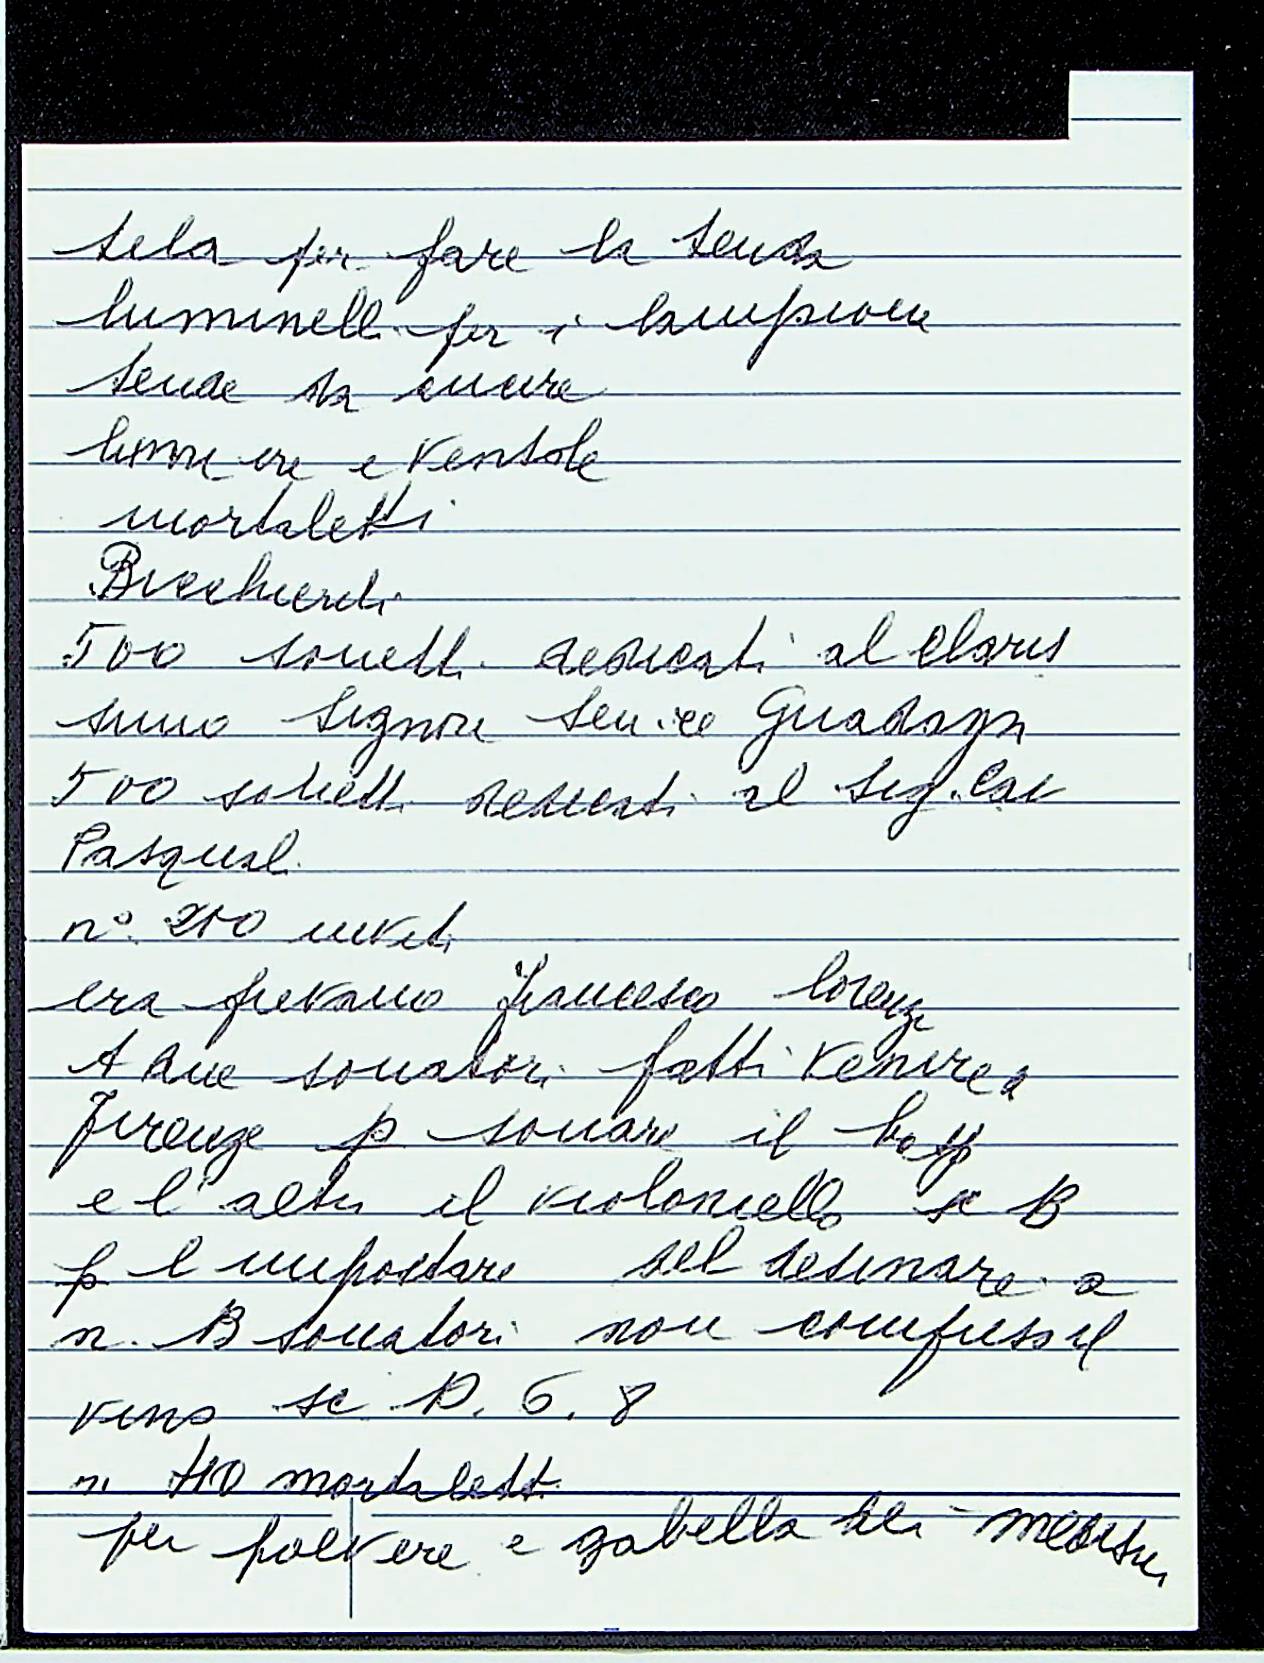 tela per fare la tenda
luminelli per i lampioni
tende da cucire
lumiere e ventole
mortaletti
Bicchierli
500 sonetti dedicati al Claris
simo Signore Guadagni
500 sonetti dedicati al Sig. Cav
Pasquali
n° 210 inviti
era pievano Francesco Lorenzi
A due sonatori fatti venire a
Firenze p sonare il
e l'altro il violoncello sc B
p l importare del desinare a
n. B sonatori non compreso il
vino sc D. 6. 8
n. 410 mortaletti
per polvere e gabella dei medesimi